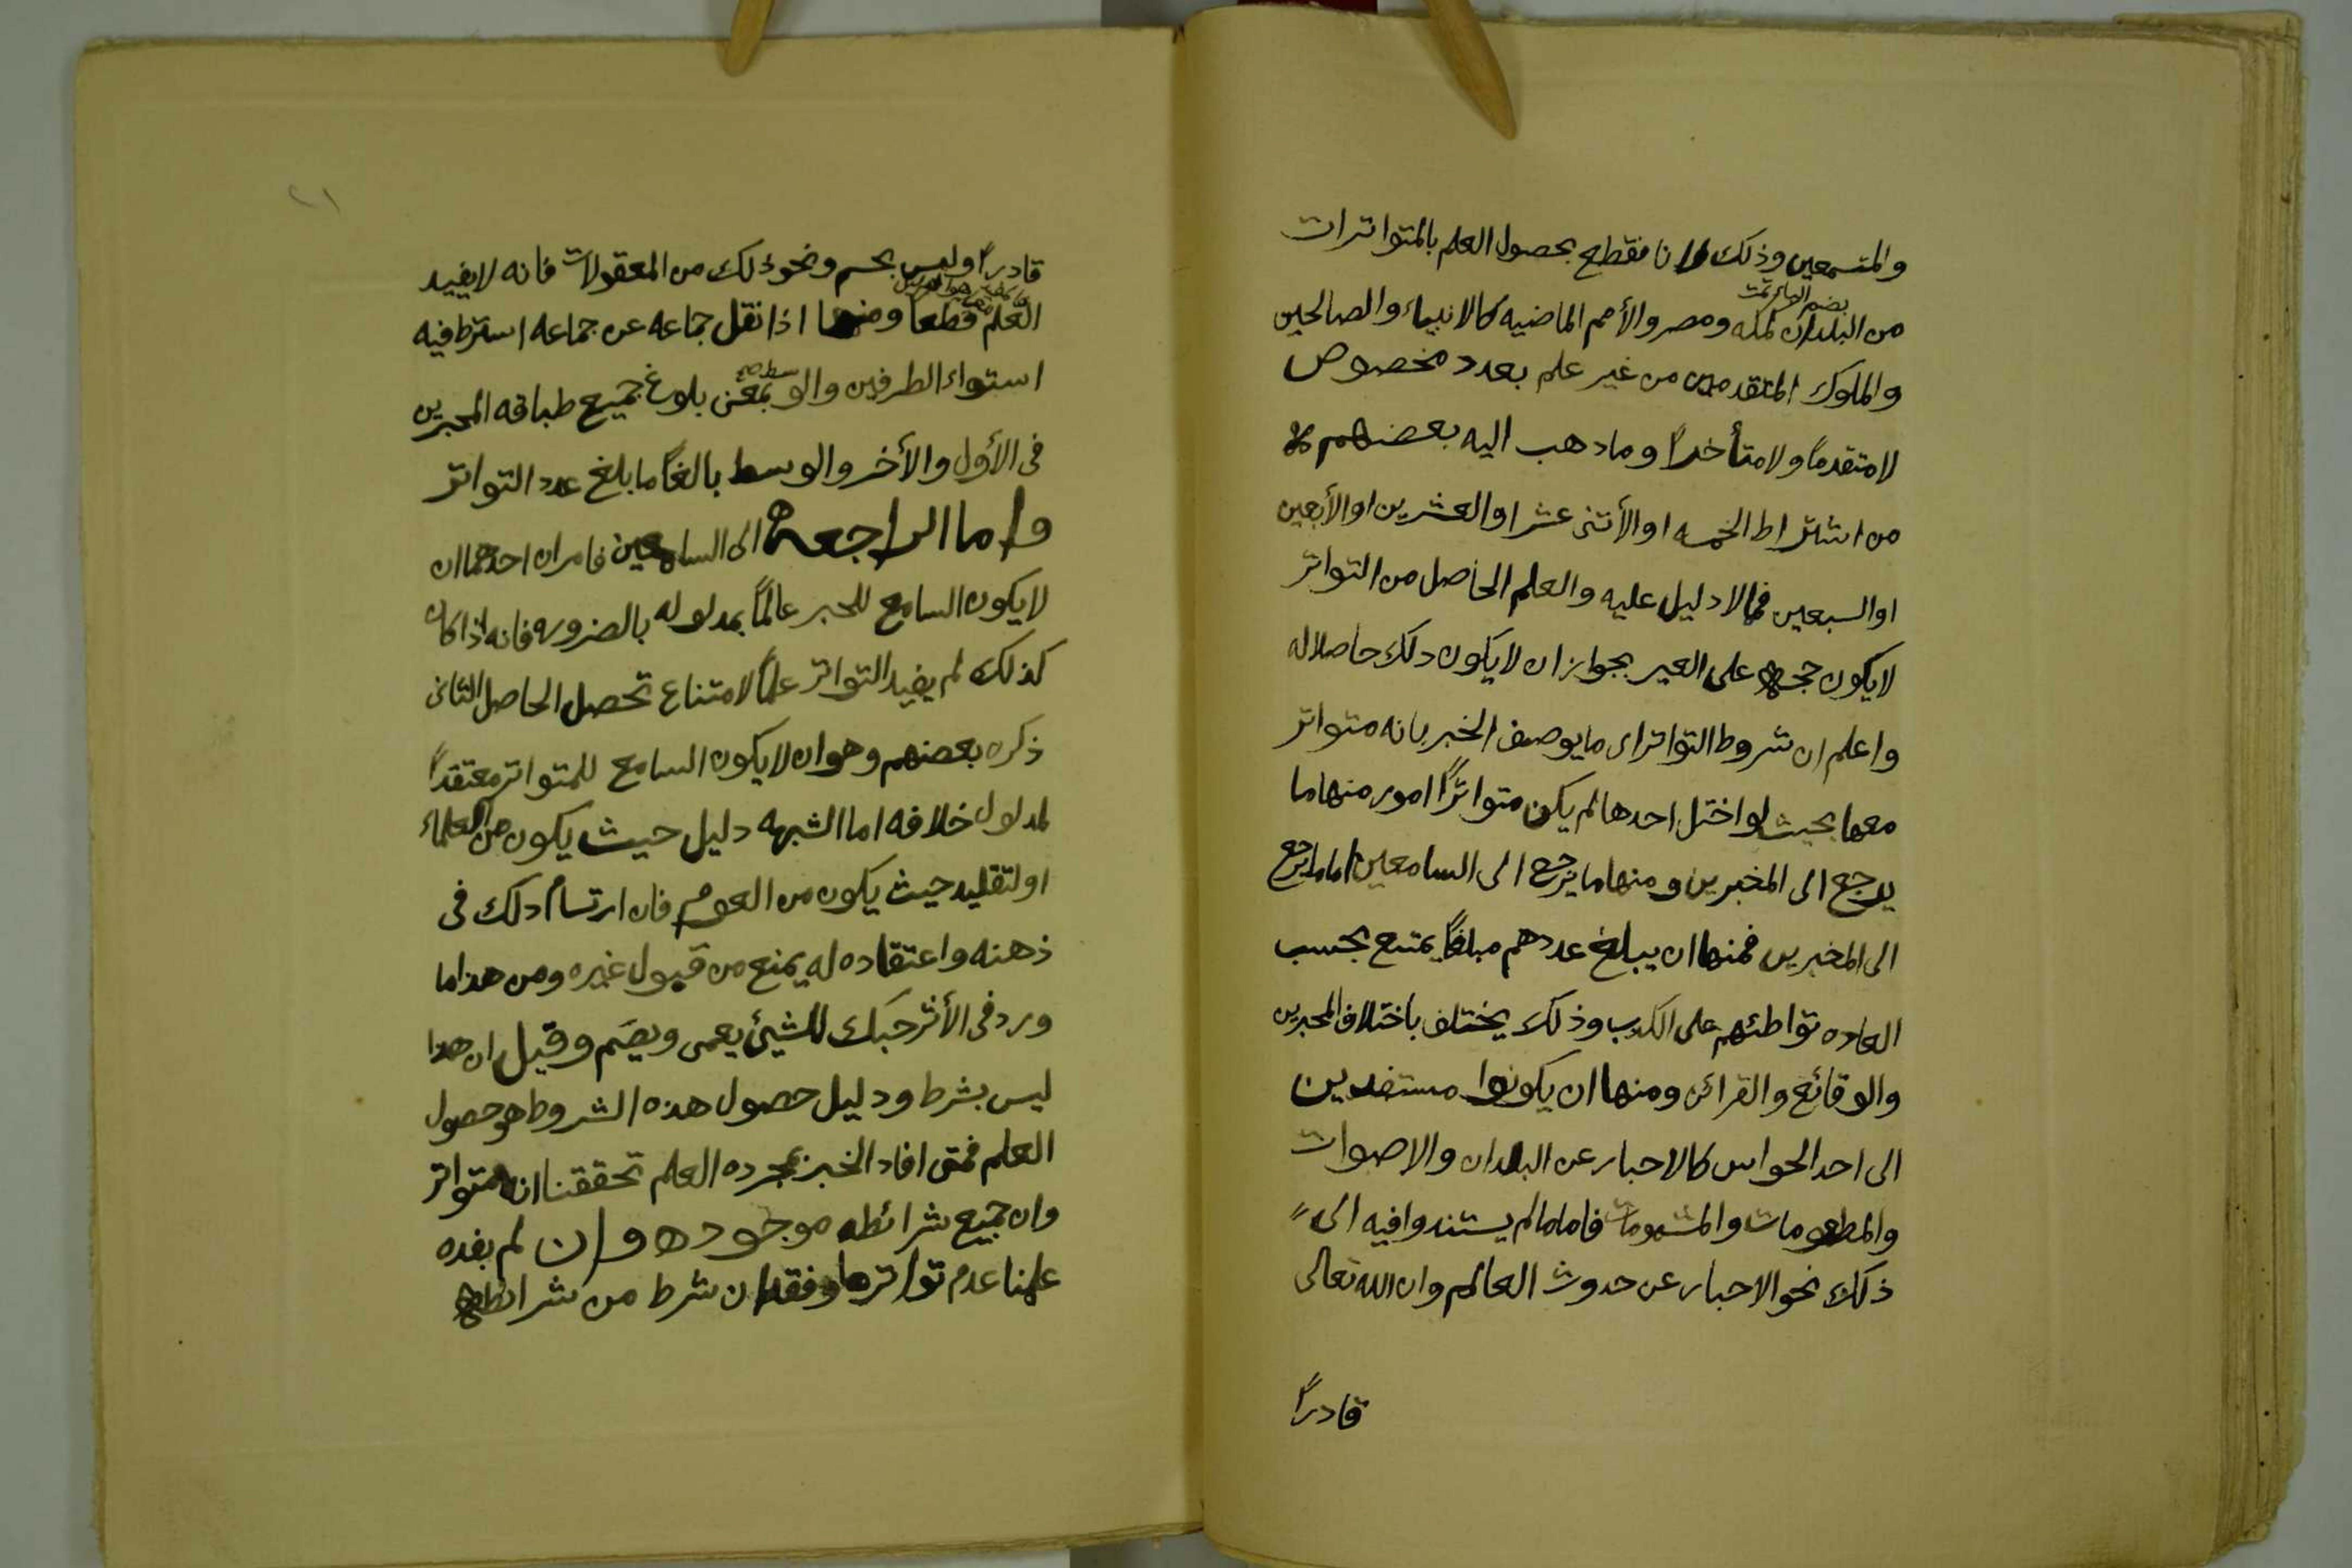 والمتسمعين وذلك لانا نقطع بحصول العلم بالمتواترات
بضم الهاء تمت
من البلدان كمكه ومصر والأمم الماضيه كالانبياء والصالحين
والملوك المتقدمين من غير علم بعدد مخصوص
لامتقدماً ولامتأخراً وماذهب اليه بعضهم
من اشتراط الخمسه اوالأثنى عشر اوالعشرين اوالأربعين
اوالسبعين فمالادليل عليه والعلم الحاصل من التواتر
لايكون حجه على الغير بجوازان لايكون ذلك حاصلاله
واعلم ان شروط التواتر اى مايوصف الخبر بانه متواتر
معها بحيث لواختل احدها لم يكن متواتراً امور منها ما
يرجع الى المخبرين ومنها مايرجع الى السامعين اما مايرجع
الى المخبرين فمنها ان يبلغ عددهم مبلغاً يمتنع بحسب
العاده تواطئهم على الكذب وذلك يختلف باختلاف المخبرين
والوقائع والقرائن ومنها ان يكونوا مستندين
الى احد الحواس كالاخبار عن البلدان والاصوات
والمطعومات والمشمومات فاما مالم يستندوا فيه الى
ذلك نحوالاخبار عن حدوث العالم وان الله تعالى
قادراً
٢١
قادراً وليس بجسم ونحوذلك من المعقولات فانه لايفيد
العلم قطعا ومنها اذا نقل جماعه عن جماعه اشترط فيه
استواء الطرفين والوسط بمعنى بلوغ جميع طباقه المخبرين
فى الأول والأخر والوسط بالغاً مابلغ عدد التواتر
واما الراجعة الى السامعين فامران احدهما ان
لايكون السامع للخبر عالماً بمدلوله بالضروره فانه اذا كان
كذلك لم يفيد التواتر علماً لامتناع تحصل الحاصل الثانى
ذكره بعضهم وهوان لايكون السامع للمتواتر معتقداً
لمدلول خلافه اما الشبهه دليل حيث يكون من العلماء
اولتقليد حيث يكون من العوام فان ارتسام ذلك فى
ذهنه واعتقاده له يمنع من قبول غيره ومن هذا ما
ورد فى الأثر حبك للشيئ يعمى ويصم وقيل ان هذا
ليس بشرط ودليل حصول هذه الشروط هو حصول
العلم فمتى افاد الخبر بمجرده العلم تحققنا انه متواتر
وان جميع شرائطه موجوده وان لم يفده
علمنا عدم تواتره وفقدان شرط من شرائطه